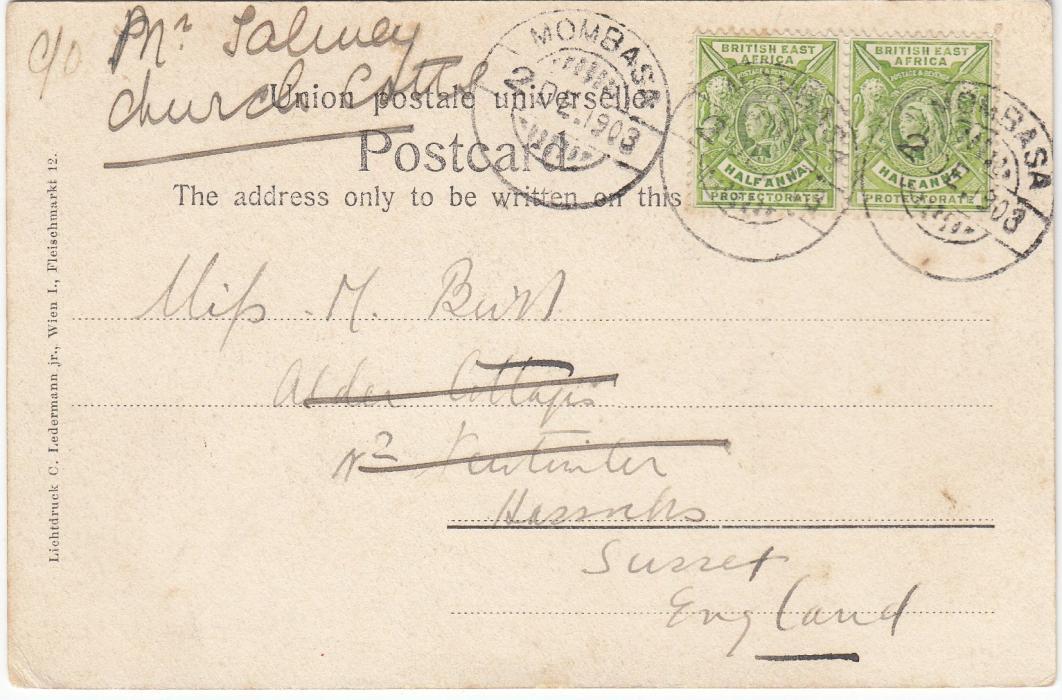 c/o Mr Salmey
Church Cotts
MOMBASA
2
DE.1903
Union postale universelle
Postcard
The address only to be written on this
BRITISH EAST
AFRICA
POSTAGE & REVENUE
HALF ANNA
PROTECTORATE
BRITISH EAST
AFRICA
POSTAGE & REVENUE
HALF ANNA
PROTECTORATE
MOMBASA
2
MOMBASA
2
DE.1903
Miss M. Burt
Alder Cottages
Nr
Hassocks
Sussex
England
Lichtdruck C. Ledermann jr., Wien I., Fleischmarkt 12.